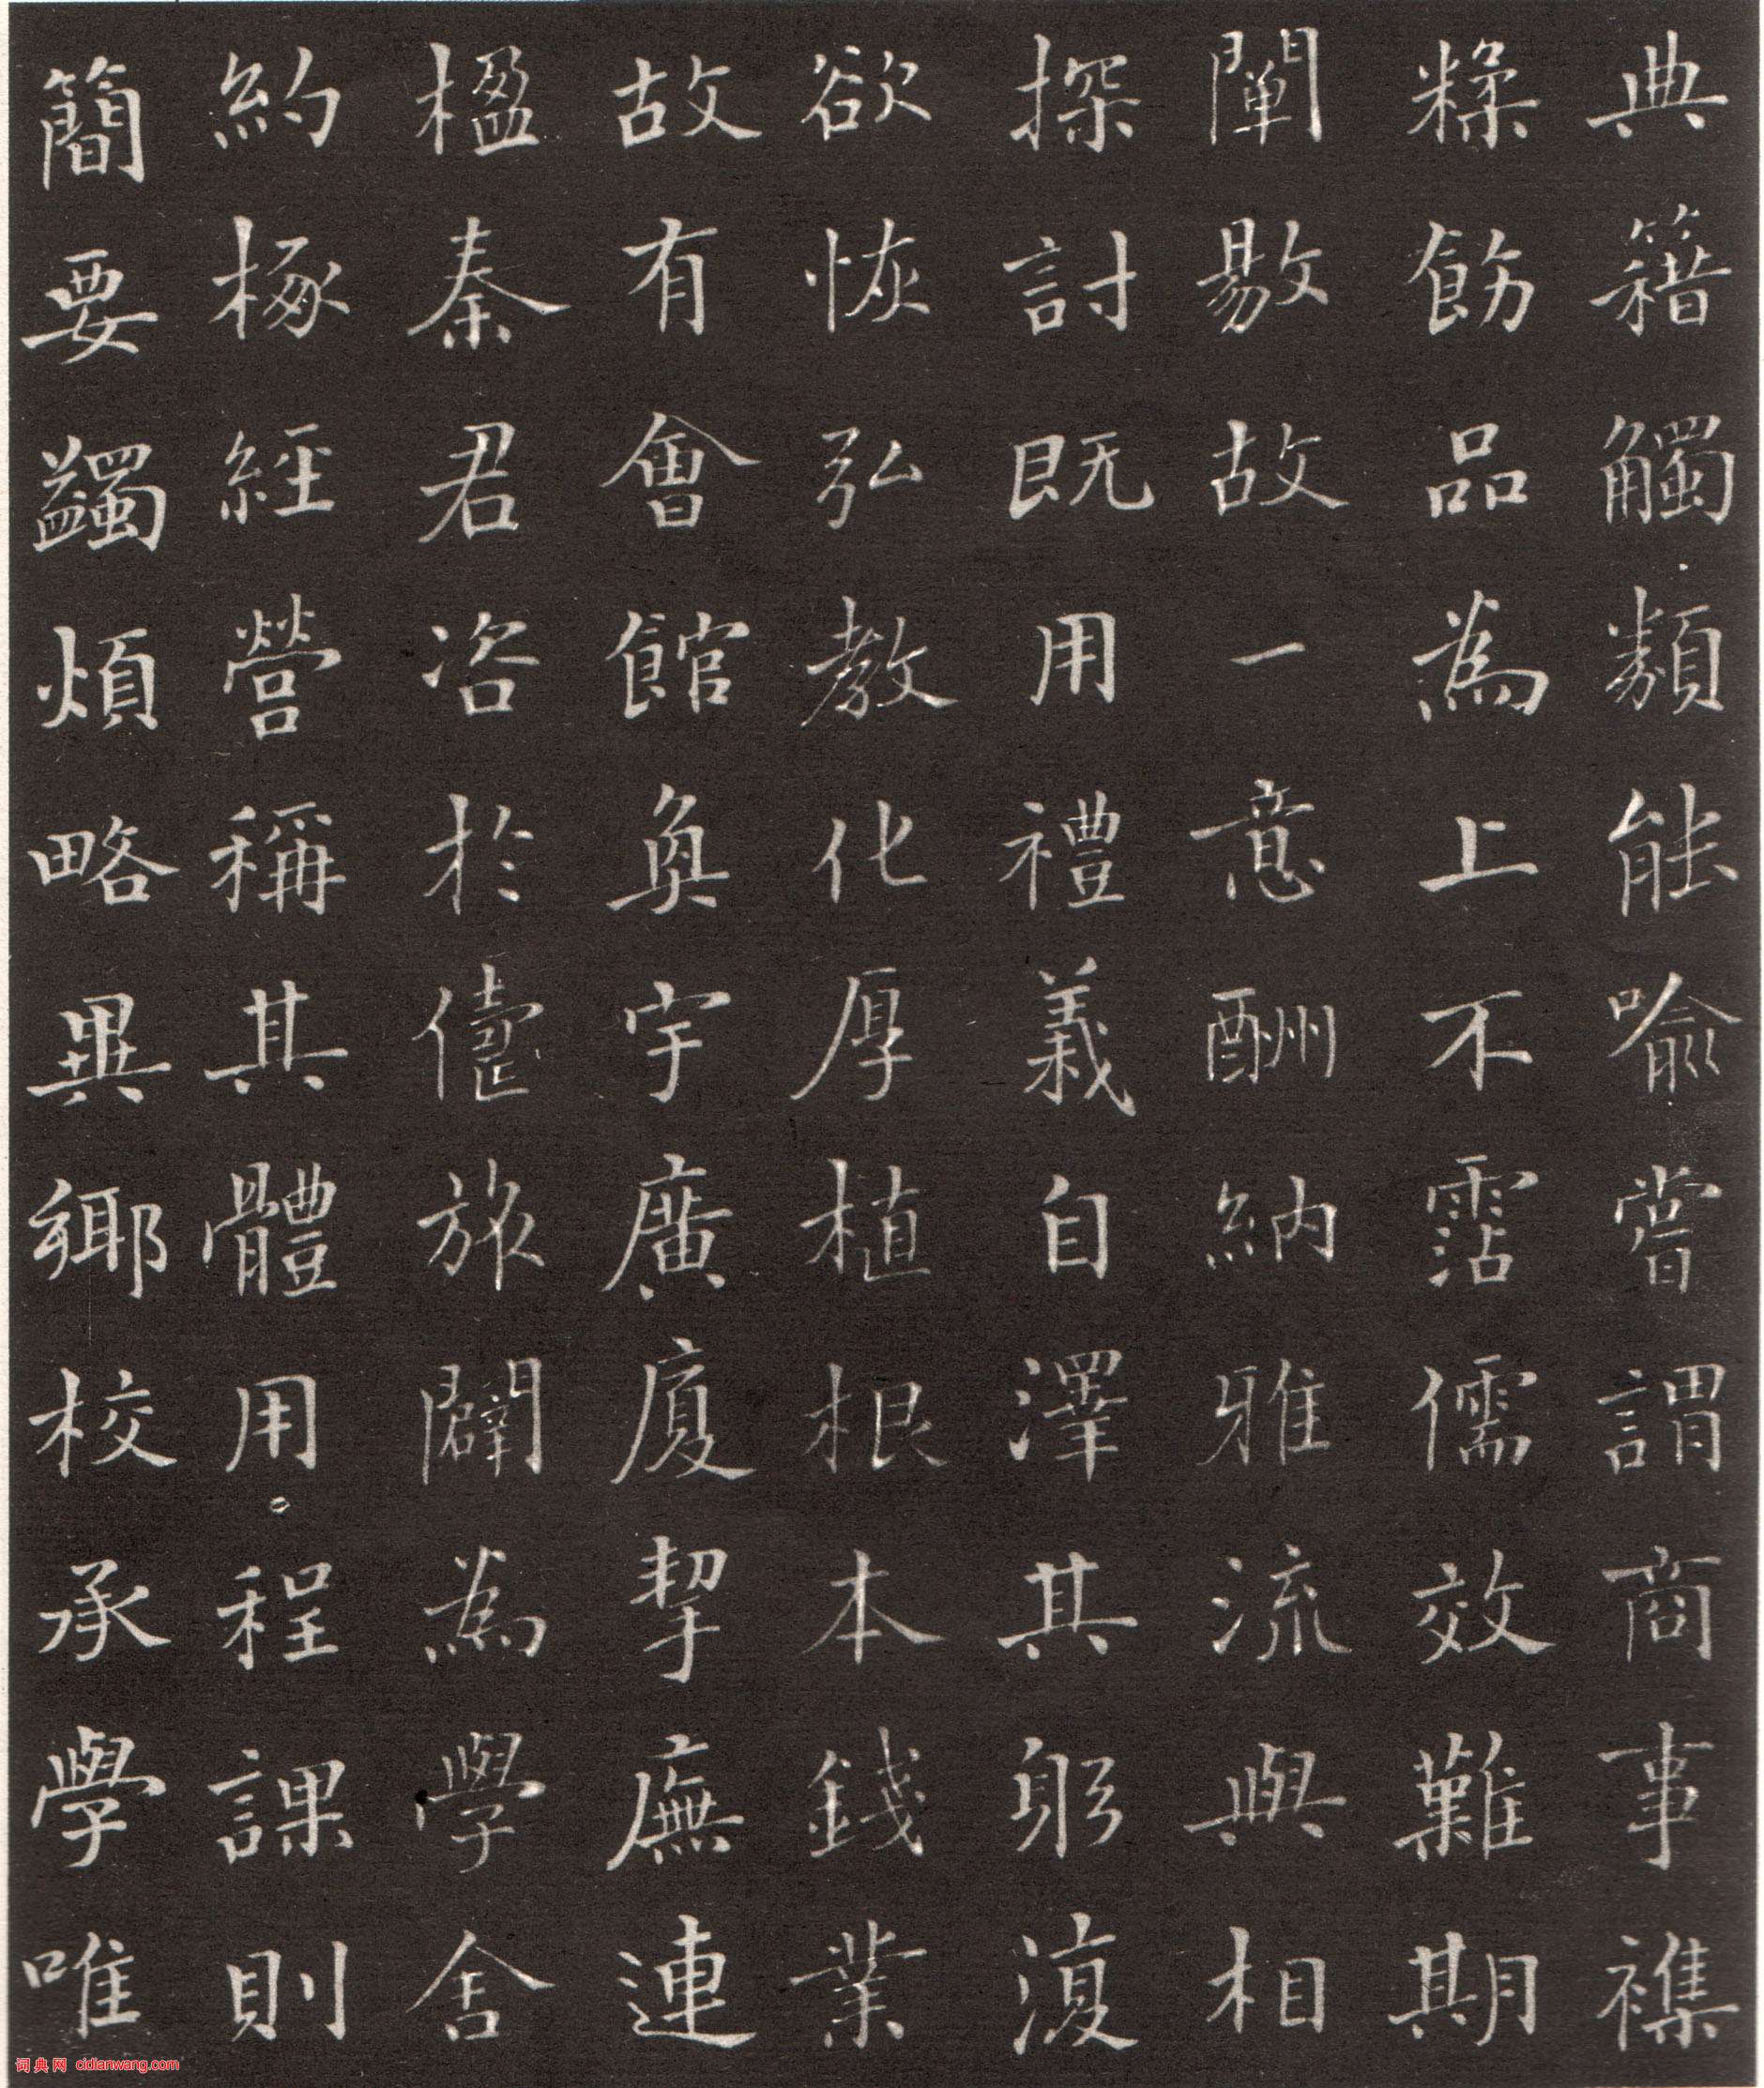 典籍觸類能喻嘗謂商事襍
糅飭品為上不霑儒效難期
闡敭故一意酬納雅流與相
探討既用禮義自澤其躬復
欲恢弘教化厚植根本錢業
故有會館奐宇廣廈挈廡連
楹秦君咨於儓旅闢為學舍
約椓經營稱其體用程課則
簡要蠲煩略異鄉校承學唯
词典网 cidianwang.com